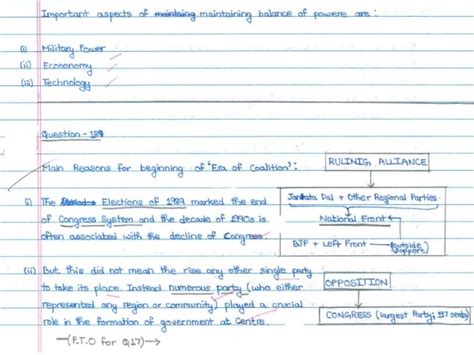 Important aspects of maintaining balance of powers are :
(i) Military Power
(ii) Econonomy
(iii) Technology
Question - 18
Main Reasons for beginning of 'Era of Coalition' :
RULINIG ALLIANCE
i) The Elections of 1989 marked the end
of Congress System and the decade of 1990s is
often associated with the decline of Congress.
Jantata Dal + Other Regional Parties
National Front
BJP + Left Front (outside support)
(ii) But this did not mean the rise any other single party
to take its place. Instead numerous party (who either
represented any region or community) played a crucial
role in the formation of government at Centre.
OPPOSITION
CONGRESS (largest Party; 197 seats)
—(P.T.O for Q17)→